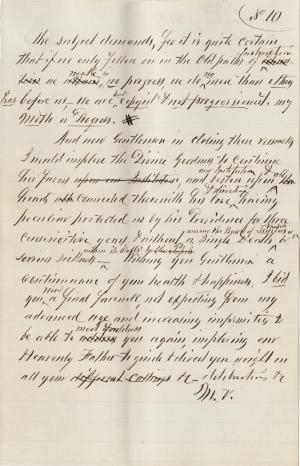 No 10
the subject demands, Yet it is quite certain
that if we only follow on in the Old paths of
instruction
we make no progress, we do no more than others
has before us, we are but copyist & not progressionist, my
Motto is Progress.
And now Gentlemen in closing these remarks
I would implore the Divine Goodness to continue
his favors upon our Institution and bestow upon all
connected therewith his love, having
protected us by his Providence for three
among the Boys of
consecutive years, & without a single Death or
within its walls
serious sickness — Wishing you Gentlemen a
continuance of your health & happiness, I bid
you a final farewell not expecting from my
advanced age and increasing infirmities to
be able to meet & address you again, imploring our
Heavenly Father to guide & direct you aright in
all your different callings &c — distribution &c
M. V.